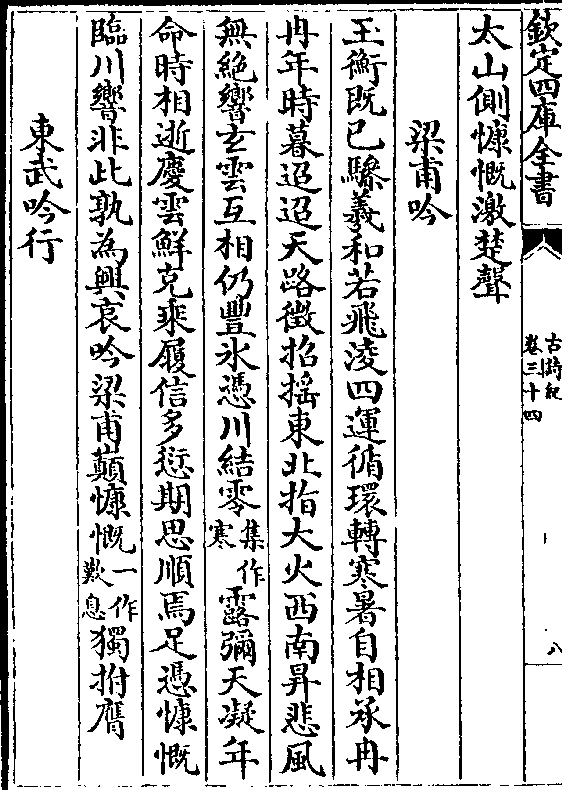 欽定四庫全書
古詩紀
卷三十四
八
太山側慷慨激楚聲
梁甫吟
玉衡既已驂羲和若飛凌四運循環轉寒暑自相承冉
冉年時暮迢迢天路徵招搖東北指大火西南昇悲風
無絶響玄雲互相仍豐氷憑川結零集作寒露彌天凝年
命時相逝慶雲鮮克乘履信多愆期思順焉足憑慷慨
臨川響非此孰為興哀吟梁甫巔慷慨一作歎息獨拊膺
東武吟行